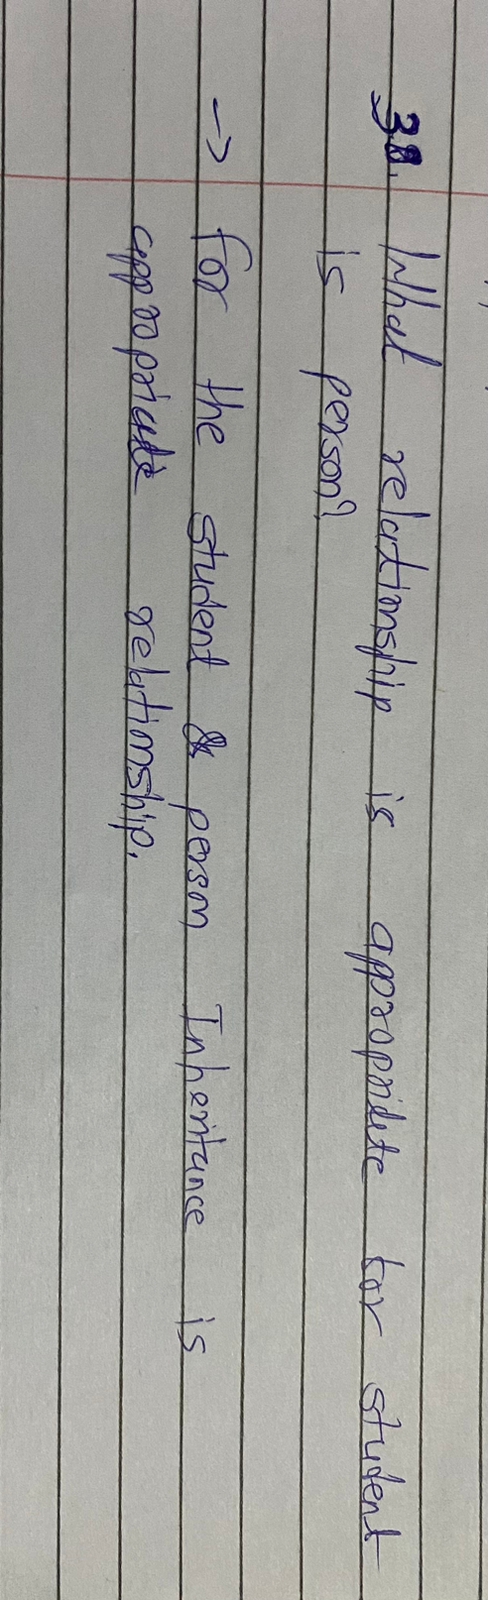 38. What relationship is appropriate for student
is person?
→ For the student & person Inheritance is
appropriate relationship.